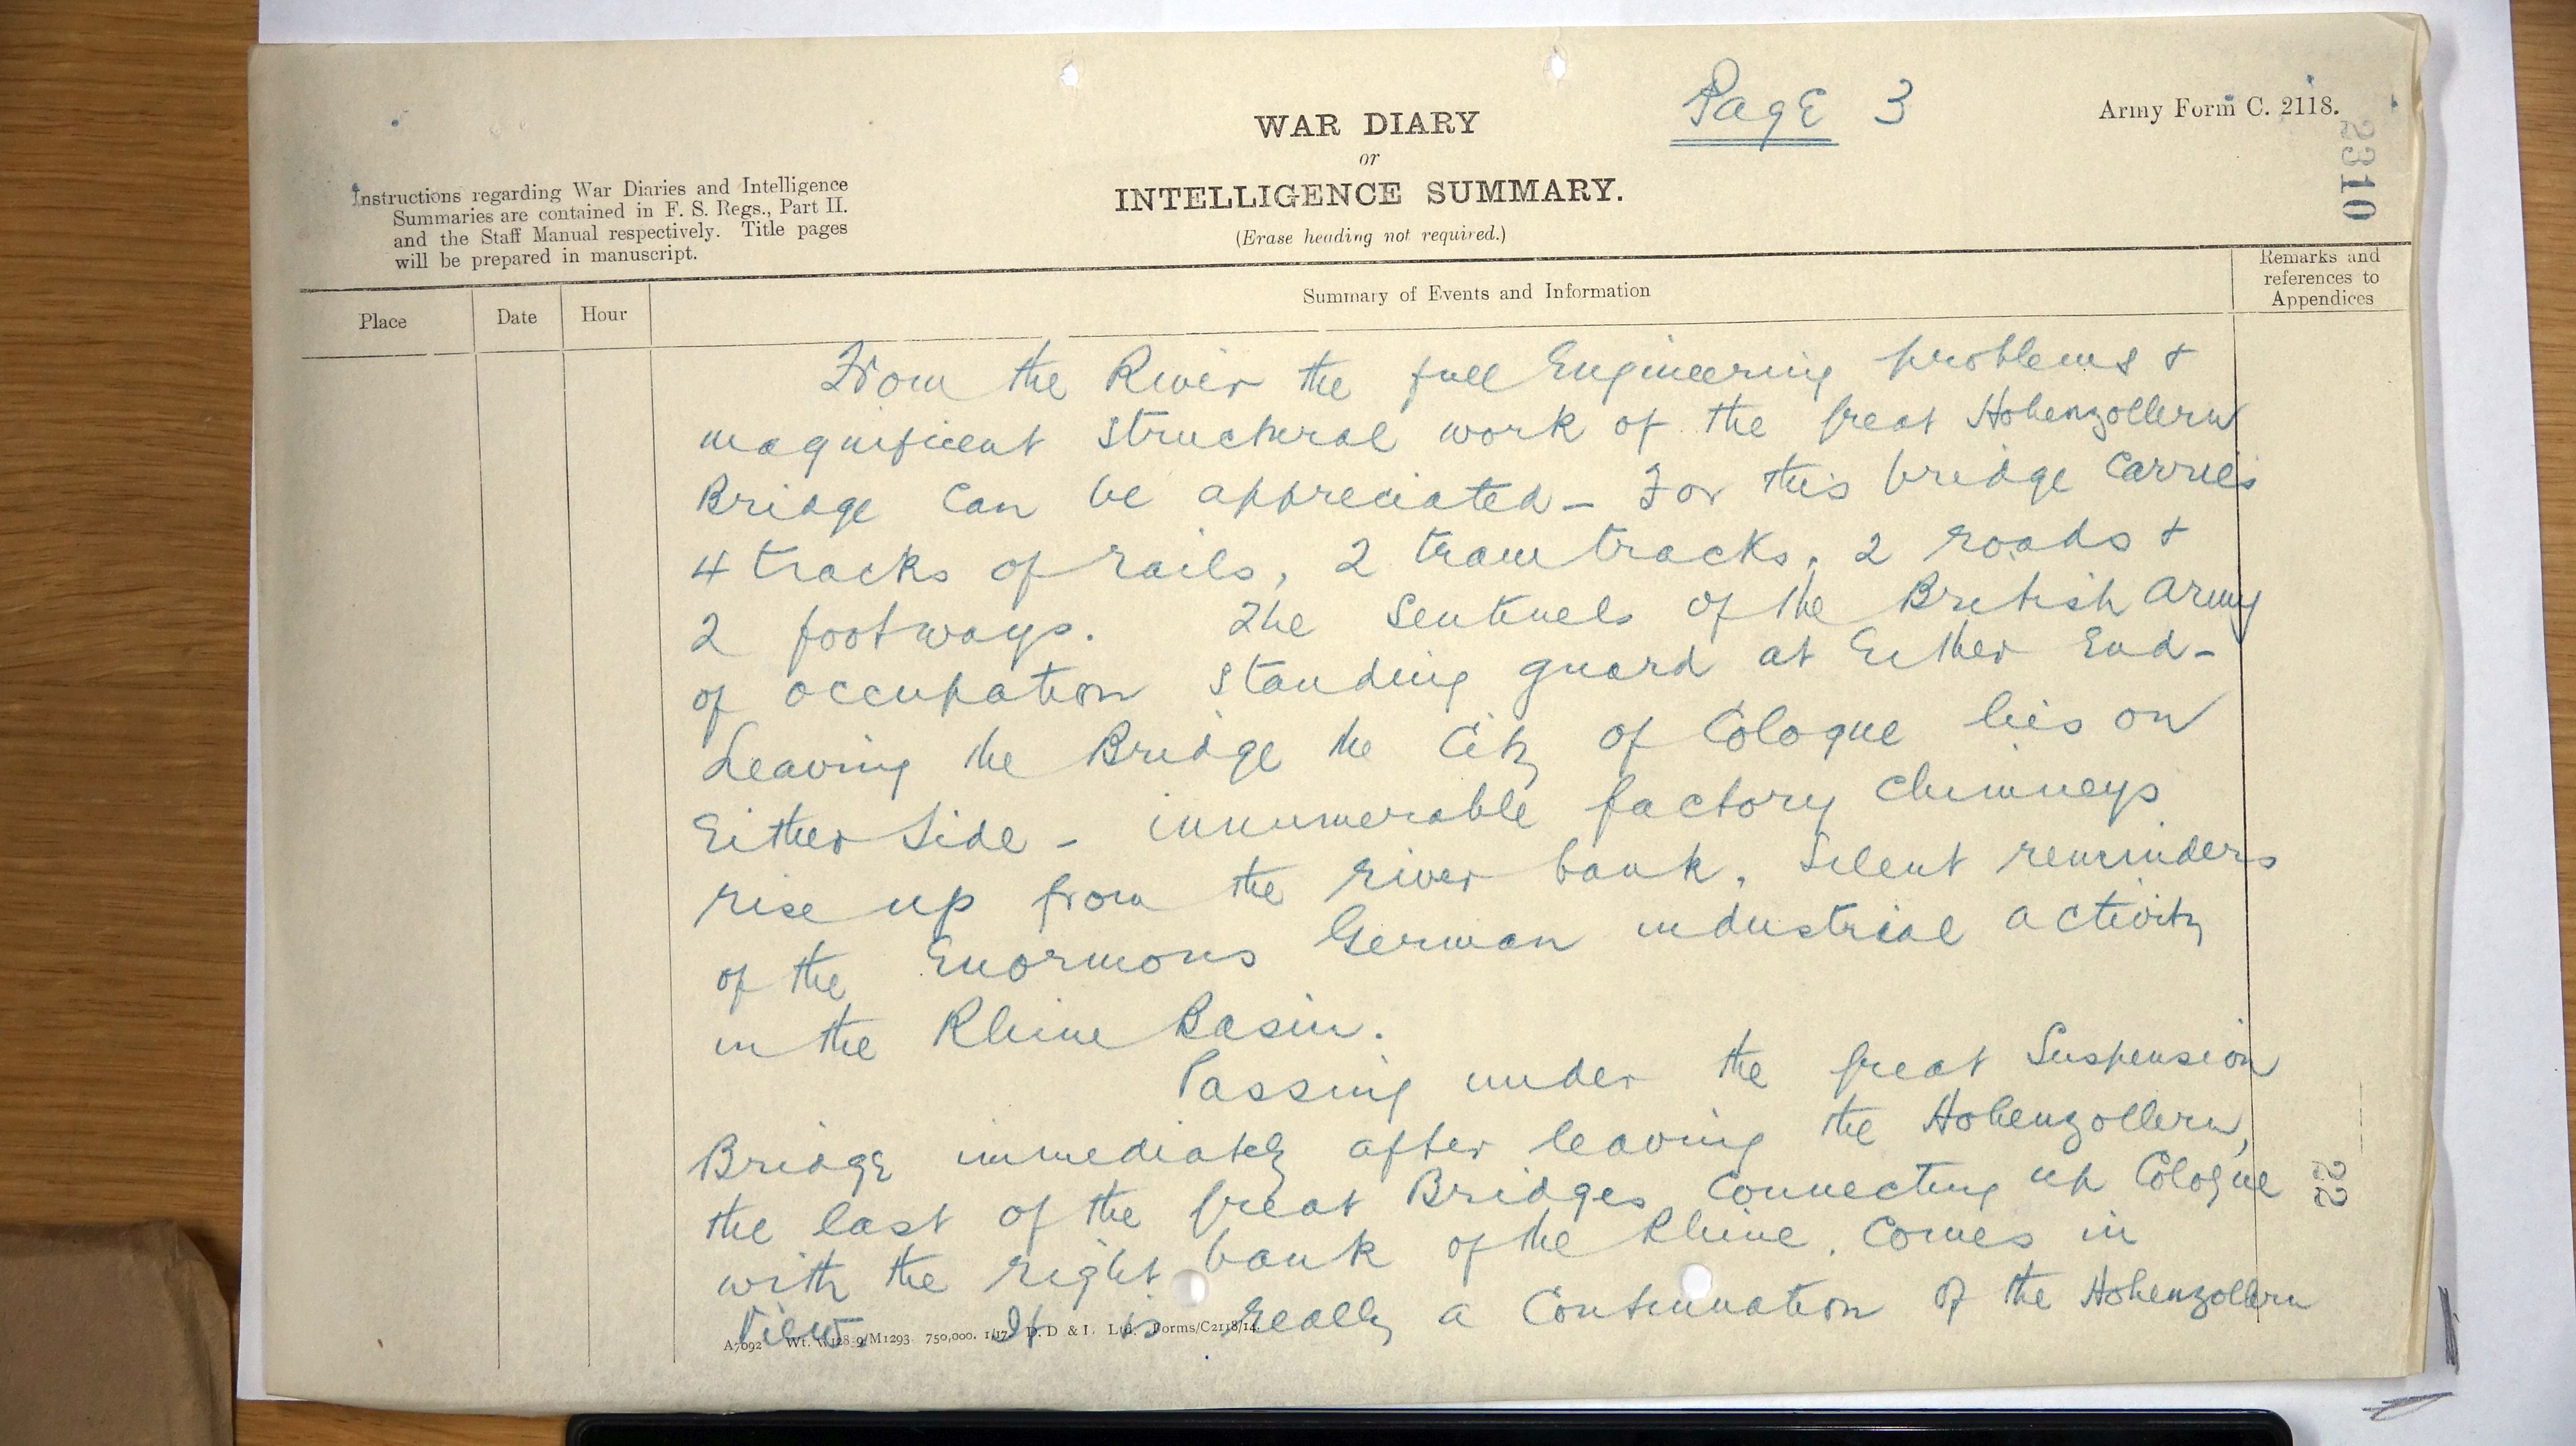 Page 3
Army Form C. 2118.
2310
WAR DIARY
or
INTELLIGENCE SUMMARY.
(Erase heading not required.)
Instructions regarding War Diaries and Intelligence
Summaries are contained in F. S. Regs., Part II.
and the Staff Manual respectively. Title pages
will be prepared in manuscript.
Place
Date
Hour
Summary of Events and Information
Remarks and
references to
Appendices
From the River the full Engineering problems &
magnificent structural work of the great Hohenzollern
Bridge can be appreciated - For this bridge carries
4 tracks of rails, 2 tram tracks, 2 roads &
2 footways. The Sentinels of the British Army
of occupation standing guard at Either End -
Leaving the Bridge the City of Cologne lies on
Either Side - innumerable factory chimneys
rise up from the river bank, Silent reminders
of the Enormous German industrial activity
in the Rhine Basin.
Passing under the great Suspension
Bridge immediately after leaving the Hohenzollern,
the last of the great Bridges connecting up Cologne
with the right bank of the Rhine, comes in
View. It is really a Continuation of the Hohenzollern
22
A7092 Wt. W128 9/M1293 750,000. 1/17. D. D & L. Ltd. Forms/C2118/14.